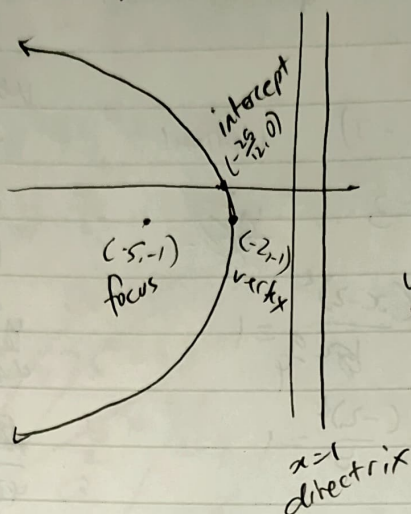 intercept
(-25/12, 0)
(-5,-1)
focus
(-2,-1)
vertex
x=1
directrix